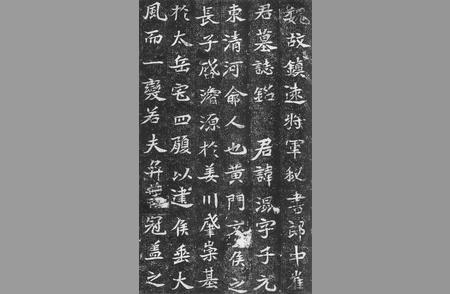 魏故鎮遠將軍秘書郎中崔
君墓誌銘 君諱混字子元
東清河俞人也黃門文侯之
長子啟濬源於姜川肇崇基
於太岳宅四履以建侯垂大
風而一變若夫弈冠盖之